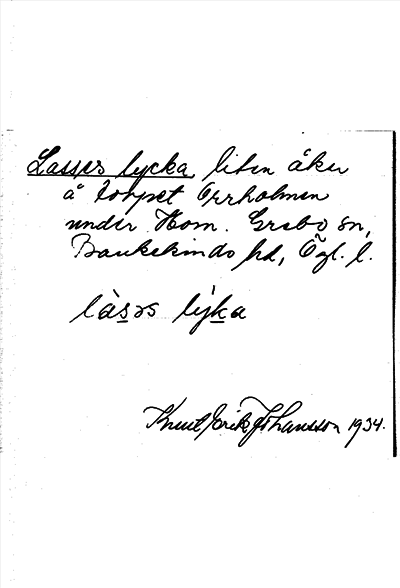 Lasses lycka, liten åker
å torpet Orrholmen
under Hom. Grebo sn,
Bankekinds hd, Ögl. l.
làsəs lýka
Knut Erik Johansson 1934.